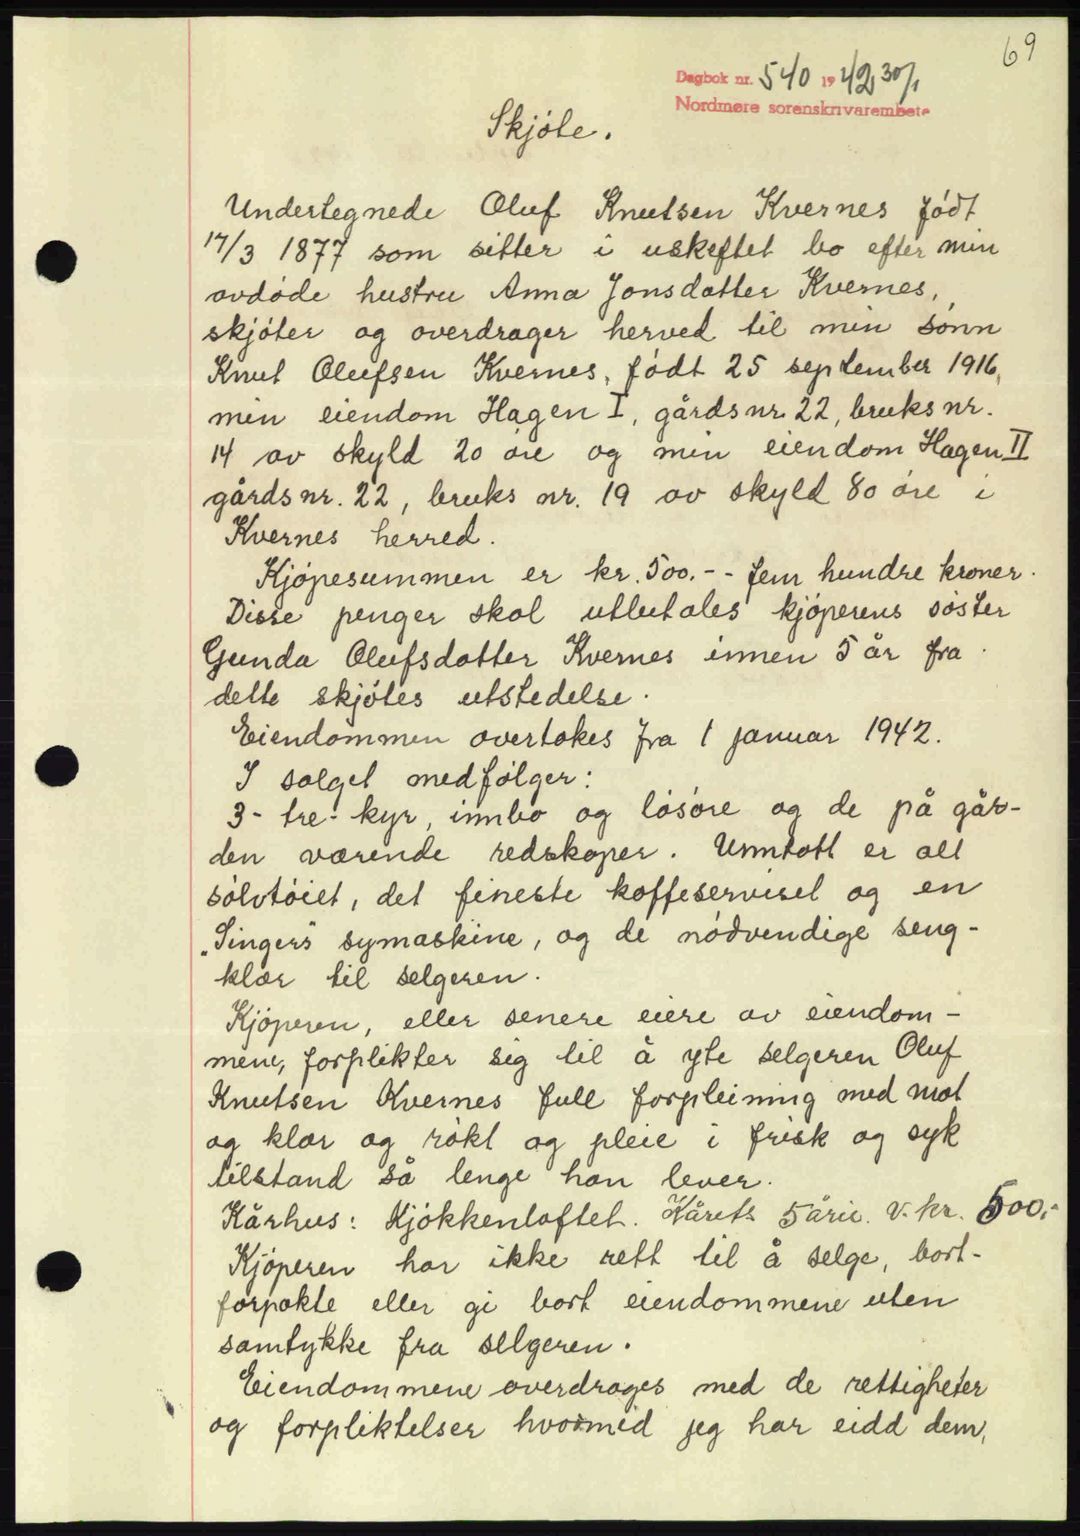 69
Dagbok nr. 540 1942 30/1
Nordmøre sorenskrivarembete
Skjöte.
Undertegnede Oluf Knutsen Kvernes födt
17/3 1877 som sitter i uskeftet bo efter min
avdöde hustru Anna Jonsdatter Kvernes,
skjöter og overdrager herved til min sönn
Knut Olufsen Kvernes, födt 25 september 1916,
min eiendom Hagen I, gårdsnr. 22, bruksnr.
14 av skyld 20 öre og min eiendom Hagen II
gårdsnr. 22, bruks nr. 19 av skyld 80 öre i
Kvernes herred.
Kjöpesummen er kr. 500.- - fem hundre kroner.
Disse penger skal utbetales kjöperens söster
Gunda Olufsdatter Kvernes innen 5 år fra
dette skjötes utstedelse.
Eiendommen overtakes fra 1 januar 1942.
I salget medfölger:
3- tre- kyr, innbo og lösöre og de på går-
den værende redskaper. Unntatt er alt
sölvtöiet, det fineste kaffeserviset og en
"Singers" symaskine, og de nödvendige seng-
klær til selgeren.
Kjöperen, eller senere eiere av eiendom-
mene, forplikter sig til å yte selgeren Oluf
Knutsen Kvernes full forpleining med mat
og klær og rökt og pleie i frisk og syk
tilstand så lenge han lever.
Kårhus: Kjökkenloftet. Kårets 5 åric. v. kr. 500,-
Kjöperen har ikke rett til å selge, bort-
forpakte eller gi bort eiendommene uten
samtykke fra selgeren.
Eiendommene overdrages med de rettigheter
og forpliktelser hvormed jeg har eidd dem,